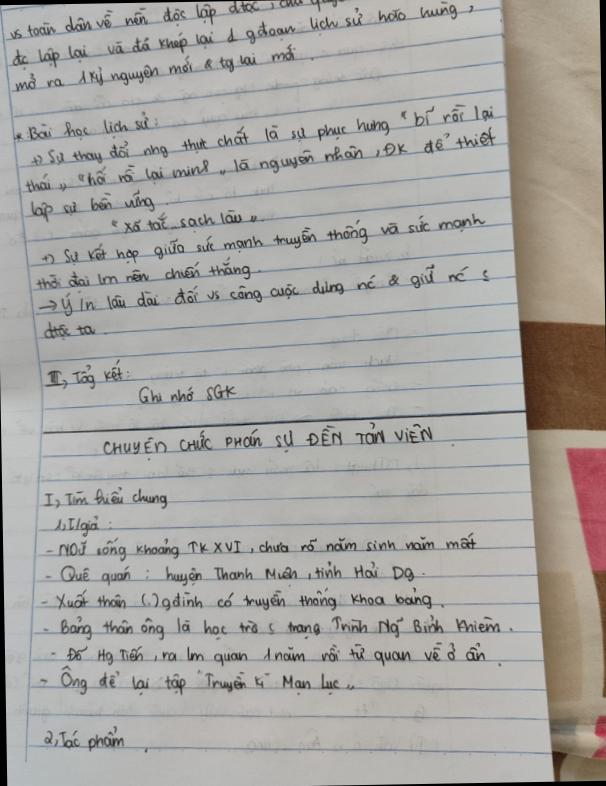 vs toàn dân về nền độc lập dtộc,
đc lập lại và đã khép lại 1 gđoạn lịch sử hào hùng,
mở ra 1 kỷ nguyên mới & tg lai mới.
* Bài học lịch sử:
+) Sự thay đổi nhg thực chất là sự phục hưng "bĩ rồi lại
thái" "hối rồi lại minh" là nguyên nhân, ĐK để thiết
lập sự bền vững.
"Xã tắc...sạch làu".
+) Sự kết hợp giữa sức mạnh truyền thống và sức mạnh
thời đại lm nên chiến thắng.
→ Ý lâu dài đối vs công cuộc dựng nc & giữ nc
dtộc ta.
III, Tổg kết:
Ghi nhớ SGK
CHUYỆN CHỨC PHÁN SỰ ĐỀN TẢN VIÊN.
I, Tìm hiểu chung
1, T/giả:
- NDữ sống khoảng TK XVI, chưa rõ năm sinh năm mất
- Quê quán: huyện Thanh Miện, tỉnh Hải Dg.
- Xuất thân (.) gđình có truyền thống khoa bảng.
- Bảng thân ông là học trò trạng Trình Ng Bỉnh Khiêm.
- Đỗ Hg Tiến, ra lm quan 1 năm rồi từ quan về ở ẩn.
- Ông để lại tập "Truyền kì Mạn Lục"
2, Tác phẩm.